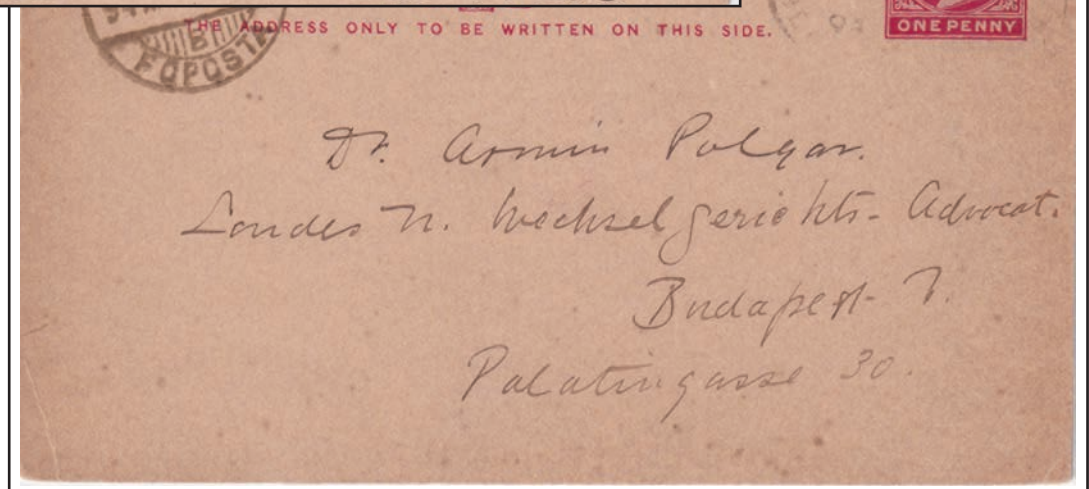 94
B
FŐPOSTA
THE ADDRESS ONLY TO BE WRITTEN ON THIS SIDE.
ONE PENNY
Dr. Armin Polgar.
Landes u. Wechselgerichts-Advocat.
Budapest
Palatingasse 30.